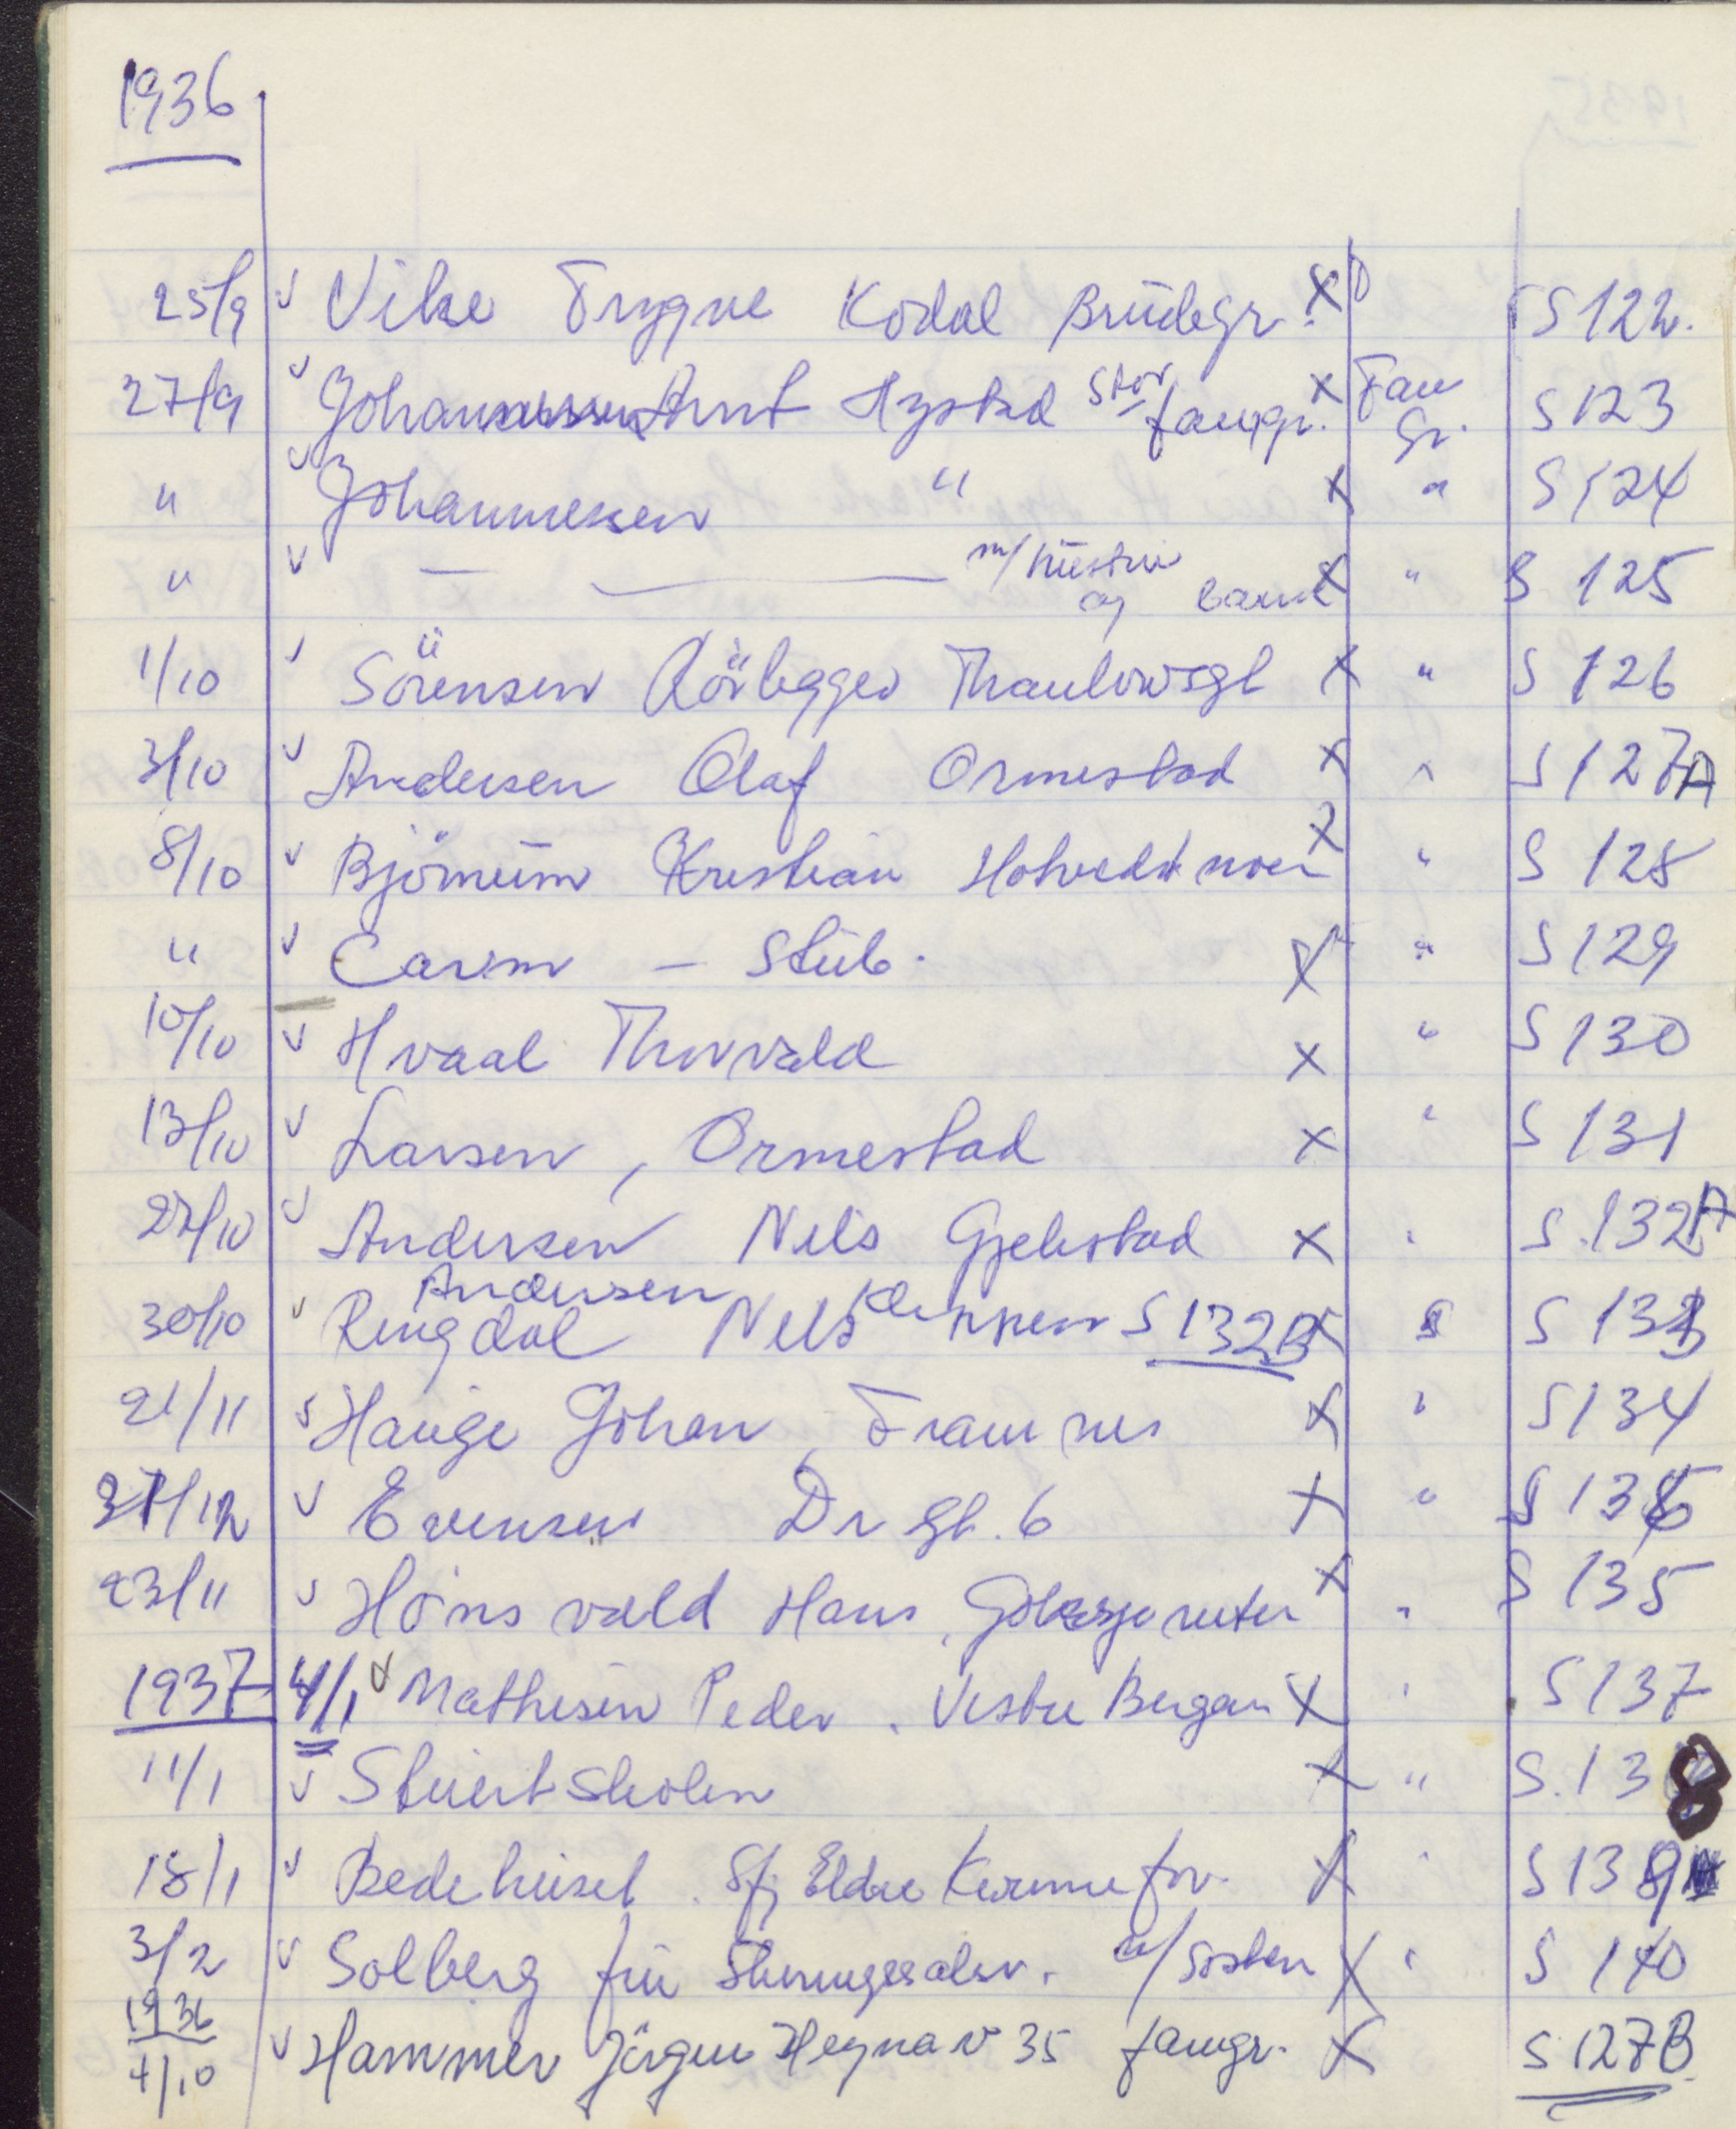 1936
25/9 Vike Trygve Kodal Brüdegr. X S 122.
27/9 Johannessen Arnt Hystad Stor famgr. X Fam Gr. S 123
" Johannessen " X " S 124
" — — m/ hüstrü og barn X " S 125
1/10 Sörensen Rörlegger Thaulowsgt X " S 126
3/10 Andersen Olaf Ormestad X " S 127A
8/10 Björnüm Kristian Hotvedt X " S 128
" Carım — Stüb. X " S 129
10/10 Hvaal Thorvald X " S 130
13/10 Larsen, Ormestad X " S 131
27/10 Andersen Nils Gjekstad X " S.132A
Andersen Kleppen S 132B
30/10 Ringdal Nils X " S 133
21/11 Haüge Johan, Framnes X " S 134
31/12 Evensen Dr gt. 6 X " S 136
23/11 Hönsvald Hans, X " S 135
1937 4/1 Mathisen Peder. Vestre Bergan X " S 137
11/1 X " S.138
18/1 Bedehüset. Sfj Eldre Kvinnefor. X " S 139
3/2 Solberg frü m/ søster X " S 140
1936
4/10 Hammer Jörgen Hegnav 35 famgr. X S 127B